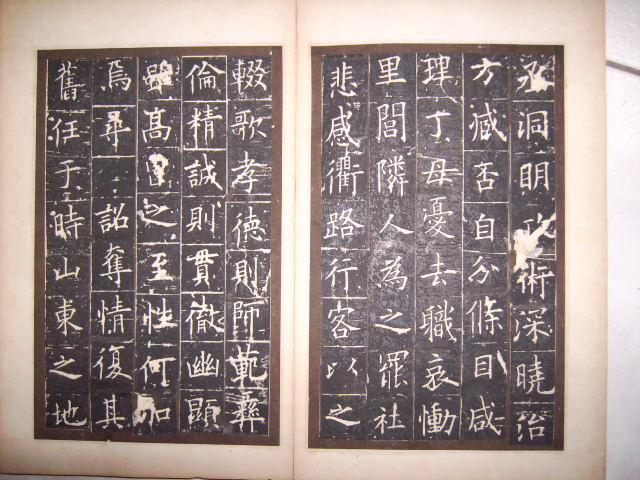 丞洞明政術深曉治
方臧否自分條目咸
理丁母憂去職哀慟
里閭隣人為之罷社
悲感衢路行客以之
輟歌孝德則師範彝
倫精誠則貫徹幽顯
雖高曾之至性何加
焉尋 詔奪情復其
舊任于時山東之地